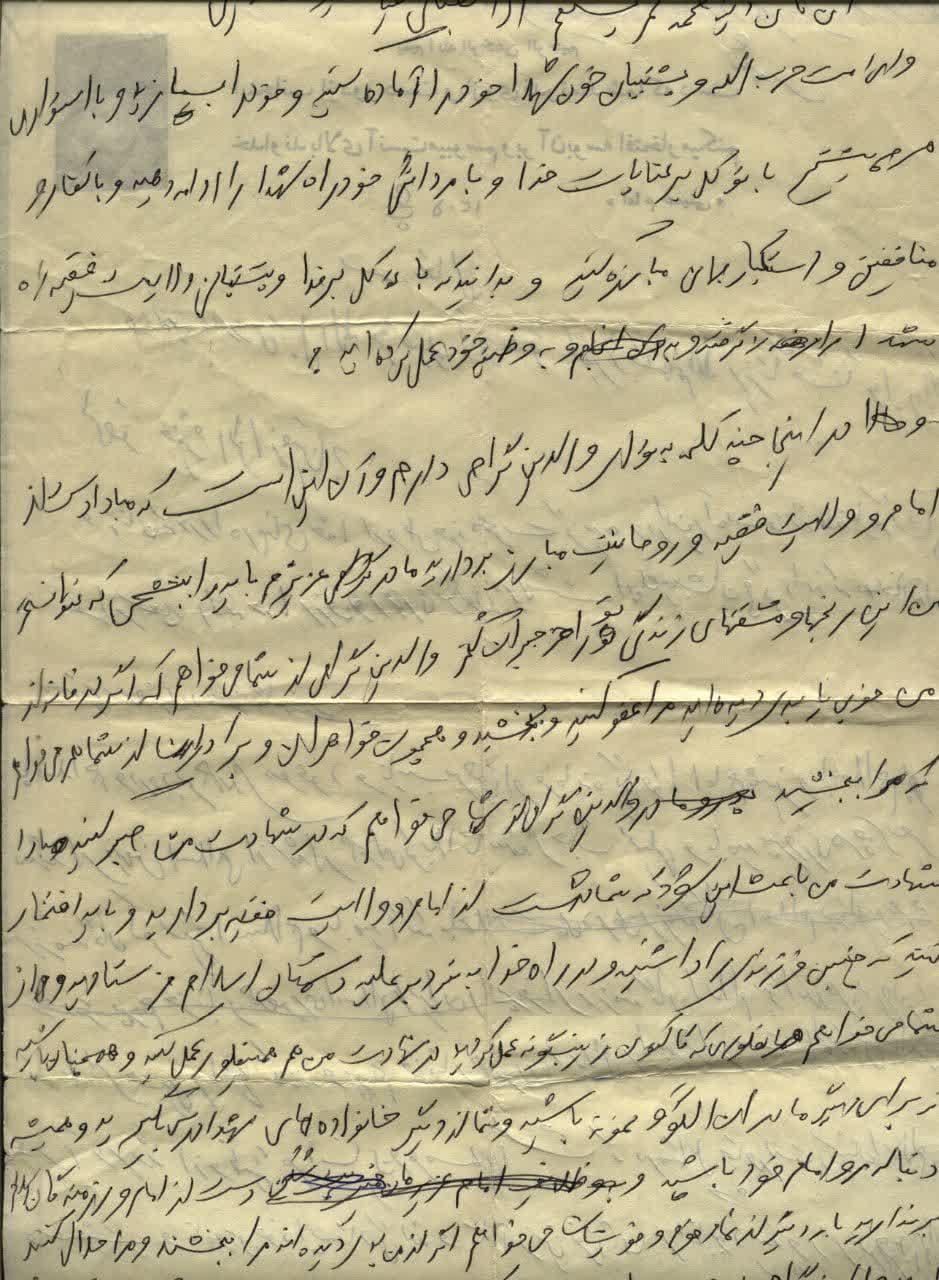 وای امت حزب الله و پشتیبان خون شهدا خود را آماده کنید و خود را بسازید و با استواری
هر چه بیشتر با توکل بر عنایات خدا و با مردانگی خود راه شهدا را ادامه دهید و با کفار و
منافقین و استکبار جهانی مبارزه کنید و بدانید که با توکل بر خدا و پشتیبان ولایت فقیه راه
شهدا را گرفته و به وظیفه خود عمل کرده اید
و حالا در اینجا چند کلمه برای والدین گرامی دارم و آن این است که مبادا دست از
امام و ولایت فقیه و روحانیت مبارز بردارید مادر عزیزم باید ببخشی که نتوانستم
این رنجها و مشقتهای زندگی تو را جبران کنم والدین گرامی از شما می خواهم که اگر
من خوبی یا بدی دیده اید مرا عفو کنید و ببخشید و همچنین خواهران و برادران از شما هم می خواهم
که مرا ببخشید والدین گرامی از شما می خواهم که در شهادت من صبر کنید مبادا
شهادت من باعث این شود که شما دست از امام و ولایت فقیه بردارید و باید افتخار
کنید که چنین فرزندی را داشتید و در راه خدا به نبرد بر علیه دشمنان اسلام فرستادید و از
شما می خواهم همانطوری که تاکنون عمل کردید در شهادت من هم همینطور عمل کنید و
برای دیگر مادران الگو و نمونه باشید و شما از دیگر خانواده های شهدا درس بگیرید و همیشه
دنباله رو امام خود باشید و دست از امام و
برندارید بار دیگر از تمام و خویشان می خواهم اگر از من بدی دیده اند مرا ببخشند و مرا حلال کنند